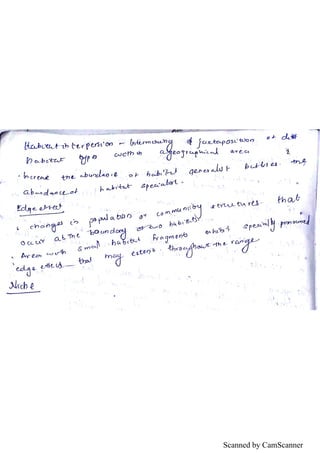 Habitat interpersion - Intermixing of juxtaposition of diff
habitat type within a geographical area
• Increase the abundance of habitat generalist butless the
abundance of habitat specialist.
Edge effect
• changes in population or community structures that
occur at the boundary of two habitats
• Area with small habitat fragments exhibit specially pronounced
edge effects that may extend throughout the range
Niche
Scanned by CamScanner